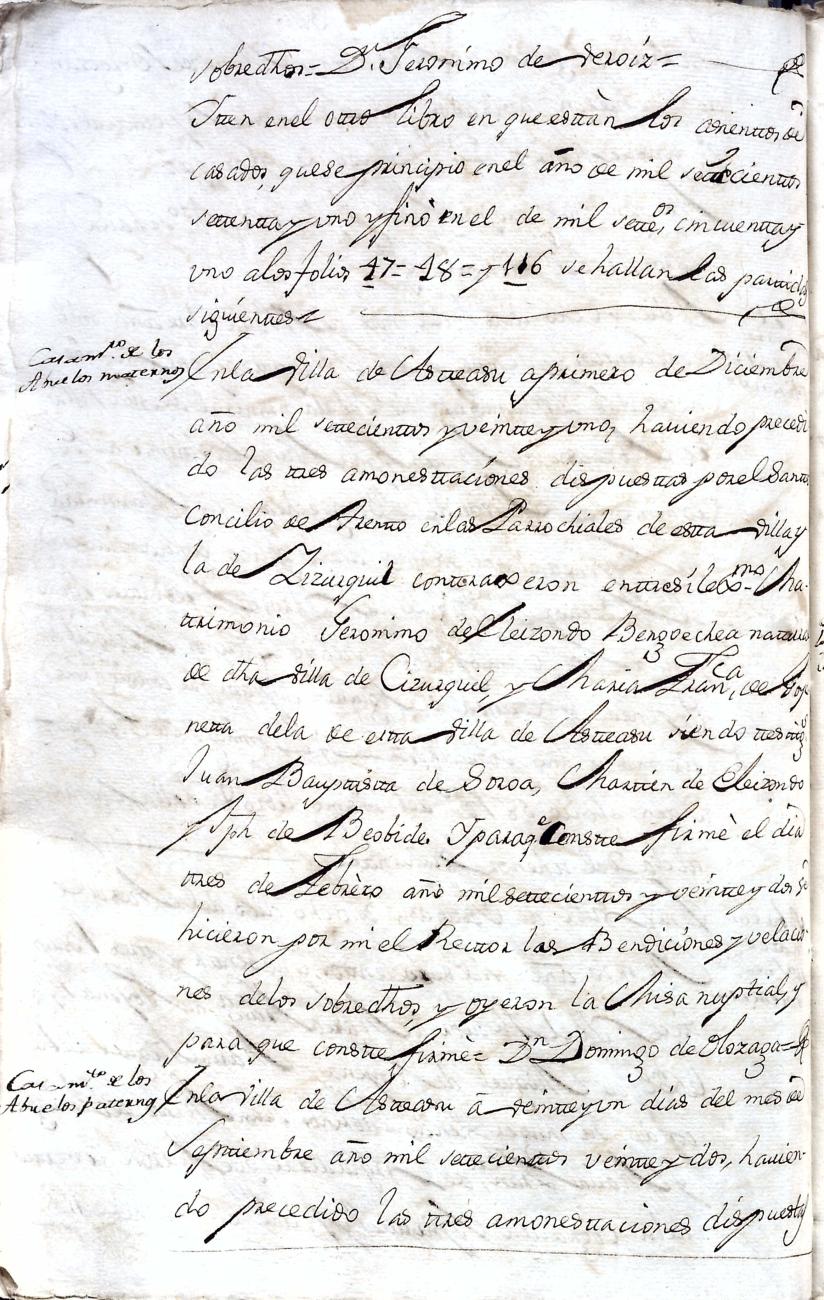 sobredhos = Dn. Jeronimo de Veroiz =
Itten en el otro libro en que están los asientos de
casados, que se principio en el año de mil settecientos
settenta y uno y finò en el de mil settes. cincuenta y
uno a los folios 47 = 48 = y 116 se hallan las partidas
siguientes
Casamto. de los
Abuelos maternos
En la Villa de Astteasu a primero de Diciembre
año mil settecientos y veintte y uno, hauiendo precedi
do las tres amonesttaciones dispuesttas por el Santo
Concilio de Trento en las Parrochiales de estta Villa y
la de Zizurquil conttraxeron enttresi lexmo. Ma-
ttrimonio Jeronimo de Eleizondo Bengoechea nattural
de dha Villa de Cizurquil, y Maria Franca. de
netta de la de estta Villa de Astteasu siendo testigos
Juan Bauptistta de Soroa, Marttin de Eleizondo
y Jph de Beobide. Y para qe. Constte firmè el dia
tres de Febrero año mil settecienttos y veintte y dos se
hicieron por mi el Recttor las Bendiciones y velacio
nes de los sobredhos, y oyeron la Misa nuptial, y
para que constte firmè = Dn. Domingo de Olozaga =
Casamto. de los
Abuelos paternos
En la Villa de Astteasu â veintte y un días del mes de
Septiembre año mil settecienttos veintte y dos, hauien-
do precedido las tres amonesttaciones dispuestas